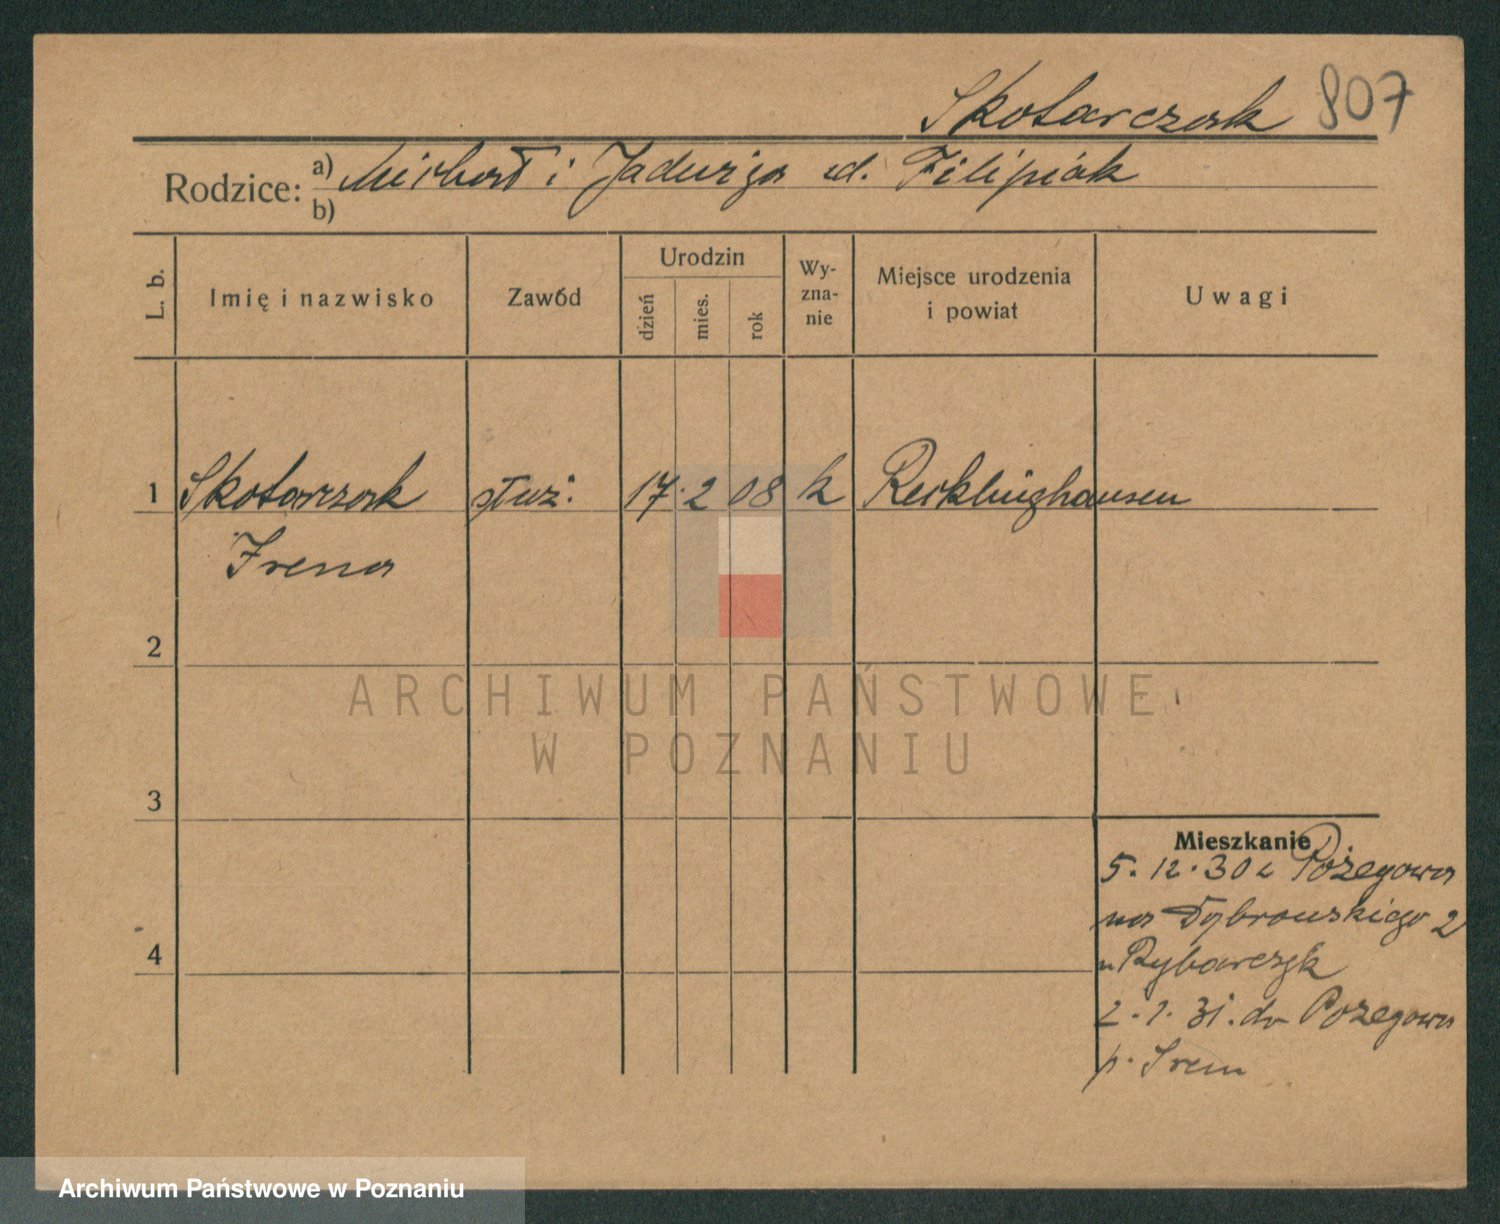 Skotarczak 807
Rodzice: a) Michał i Jadwiga ud. Filipiak
b)
L. b. Imię i nazwisko Zawód Urodzin dzień mies. rok Wy-zna-nie Miejsce urodzenia i powiat Uwagi
1 Skotarczak służ. 17. 2 08 k Recklinghausen
Irena
2
ARCHIWUM PAŃSTWOWE
W POZNANIU
3
Mieszkanie
5. 12. 30 z Pożegowa
na Dąbrowskiego 2
u Rybarczyk
2. 1. 31. do Pożegowa
4
p. Śrem
Archiwum Państwowe w Poznaniu